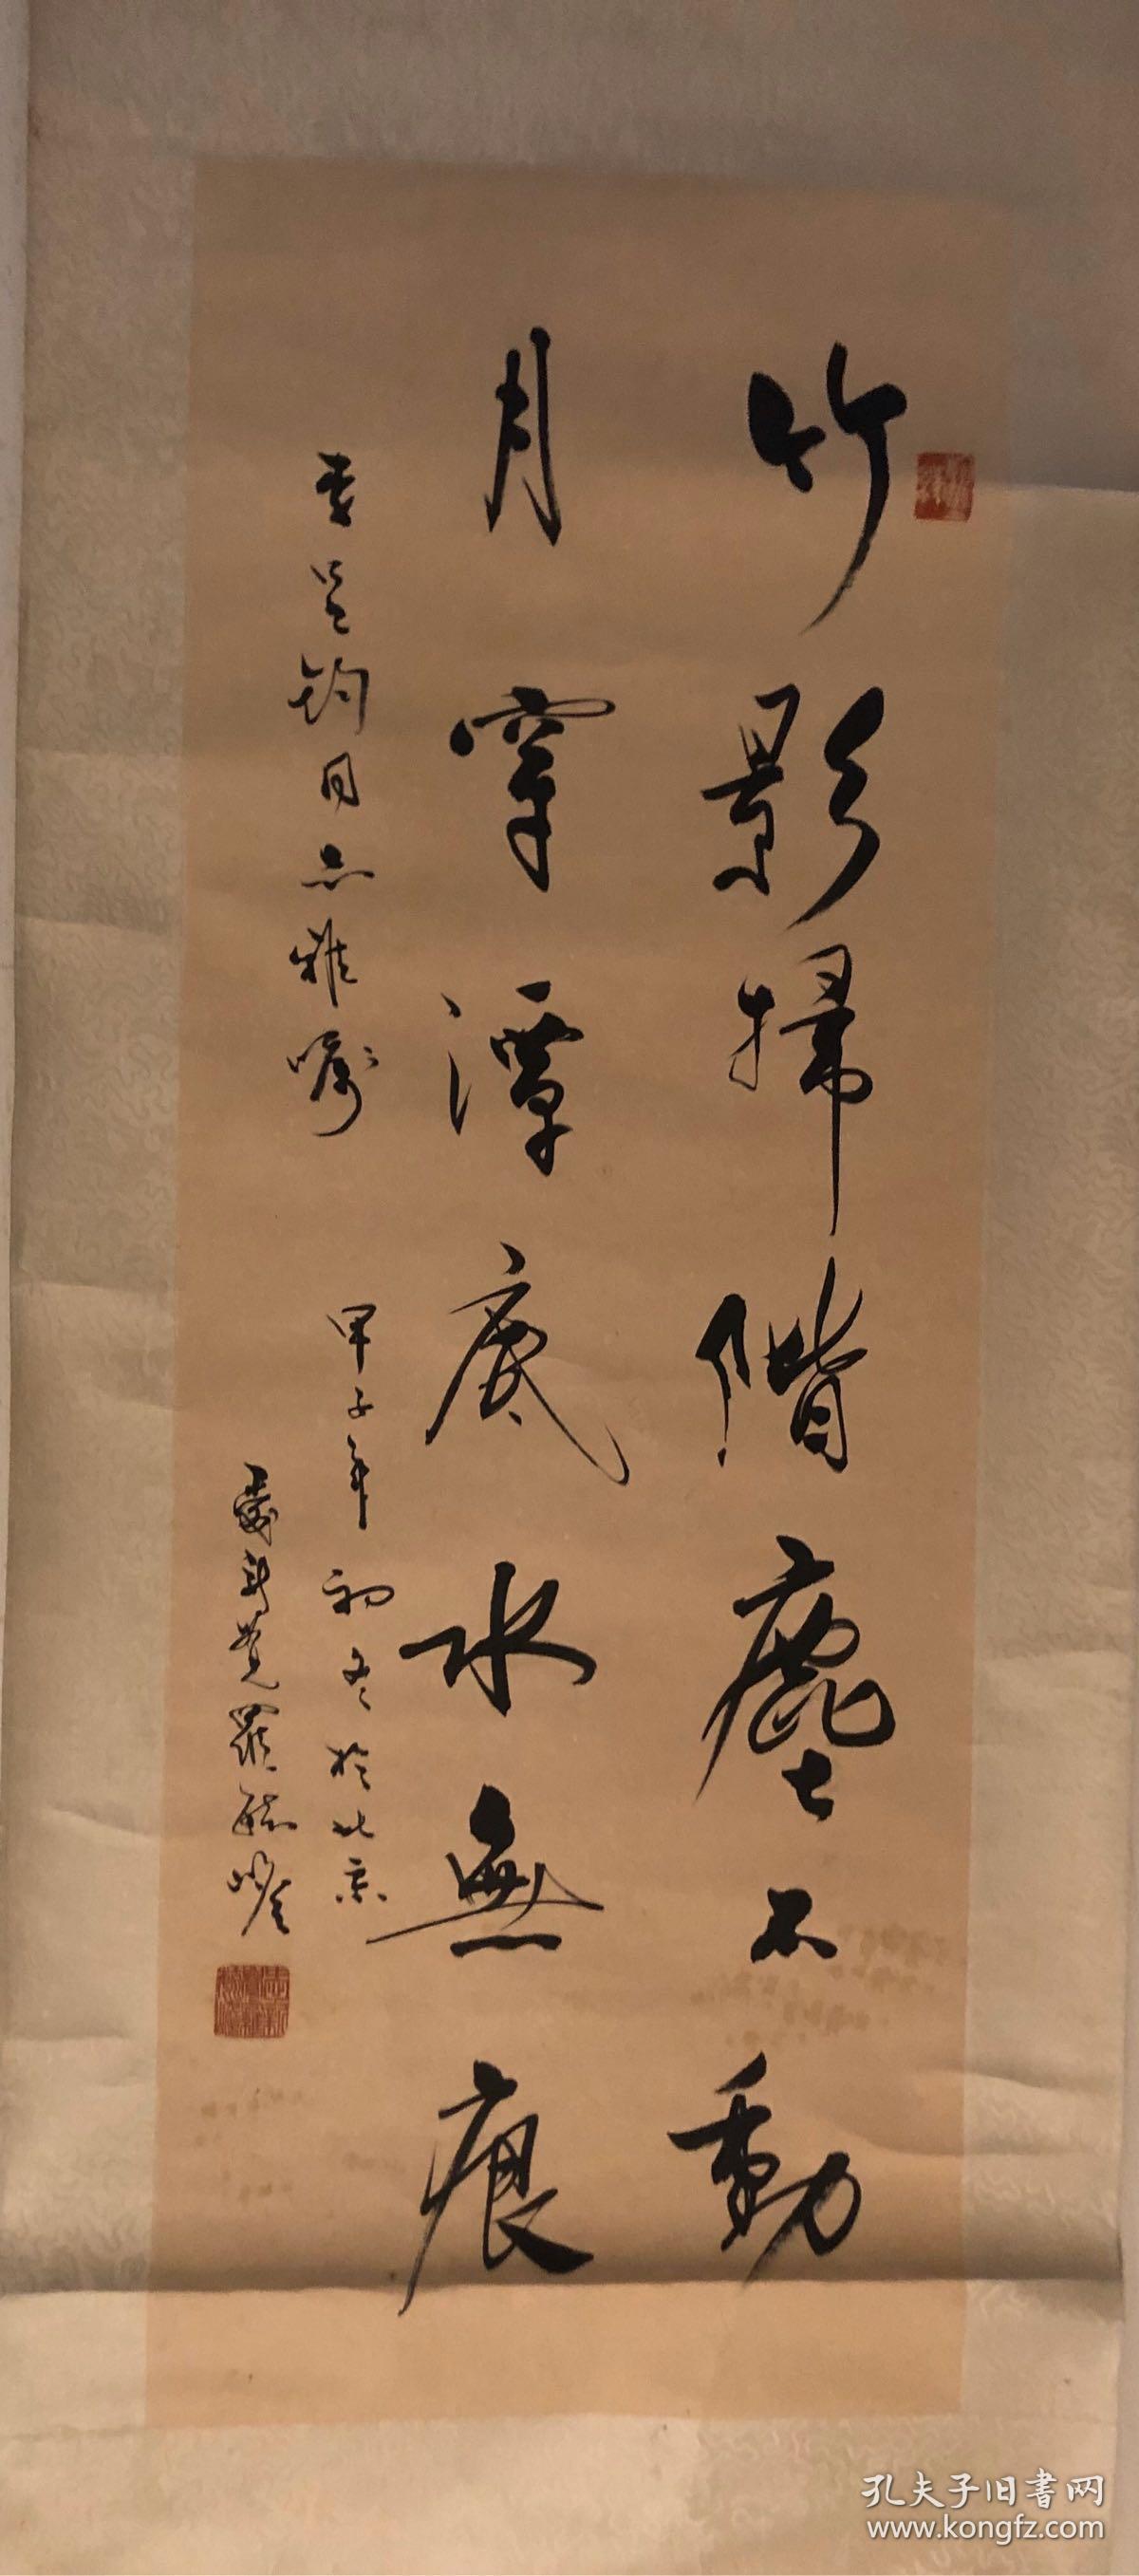 竹影掃階塵不動
月穿潭底水無痕
李 鈞同志雅囑
甲子年初冬於北京
愛新覺羅毓嶦
孔夫子旧书网
www.kongfz.com